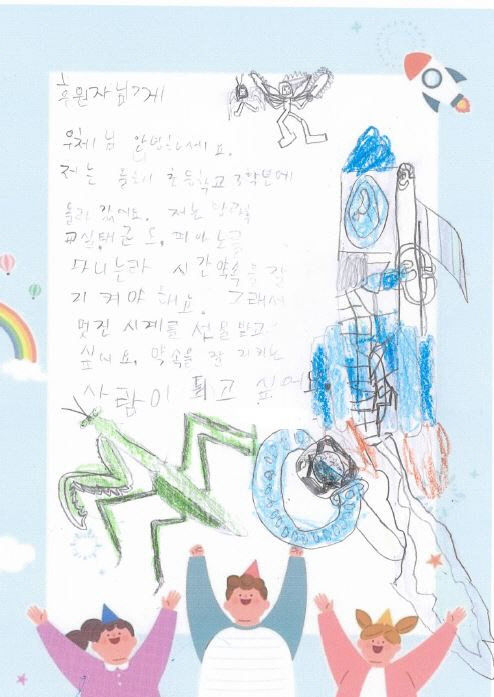 후원자님께
우체님 안녕하세요.
저는 초등학교 3학년에
올라 갔어요. 저는 방과후
교실 태권도, 피아노를
다니느라 시간약속을 잘
지켜야 해요. 그래서
멋진 시계를 선물받고
싶어요. 약속을 잘 지키는
사람이 되고 싶어요.